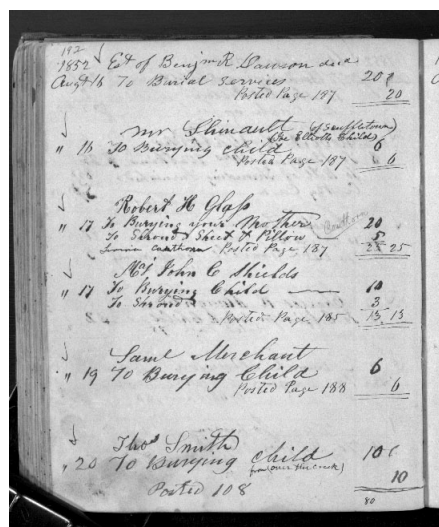 192
1852 Est of Benjm R Dawson decd
Augt 16 To Burial Services 20
Posted Page 187 20
Mr Shinault (of Scuffletown)
(see Elliotts Child)
" 16 To Burying child 6
Posted Page 187 6
Robert H Glass
" 17 To Burying your Mother 20
To Shroud Sheet & Pillow 5
Posted Page 187 25 25
Mrs John C Shields
" 17 To Burying Child 10
To Shroud 3
Posted Page 185 13 13
Saml Merchant
" 19 To Burying Child 6
Posted Page 188 6
Thos Smith
" 20 To Burying child 10
(from over the creek) 10
Posted 108
80